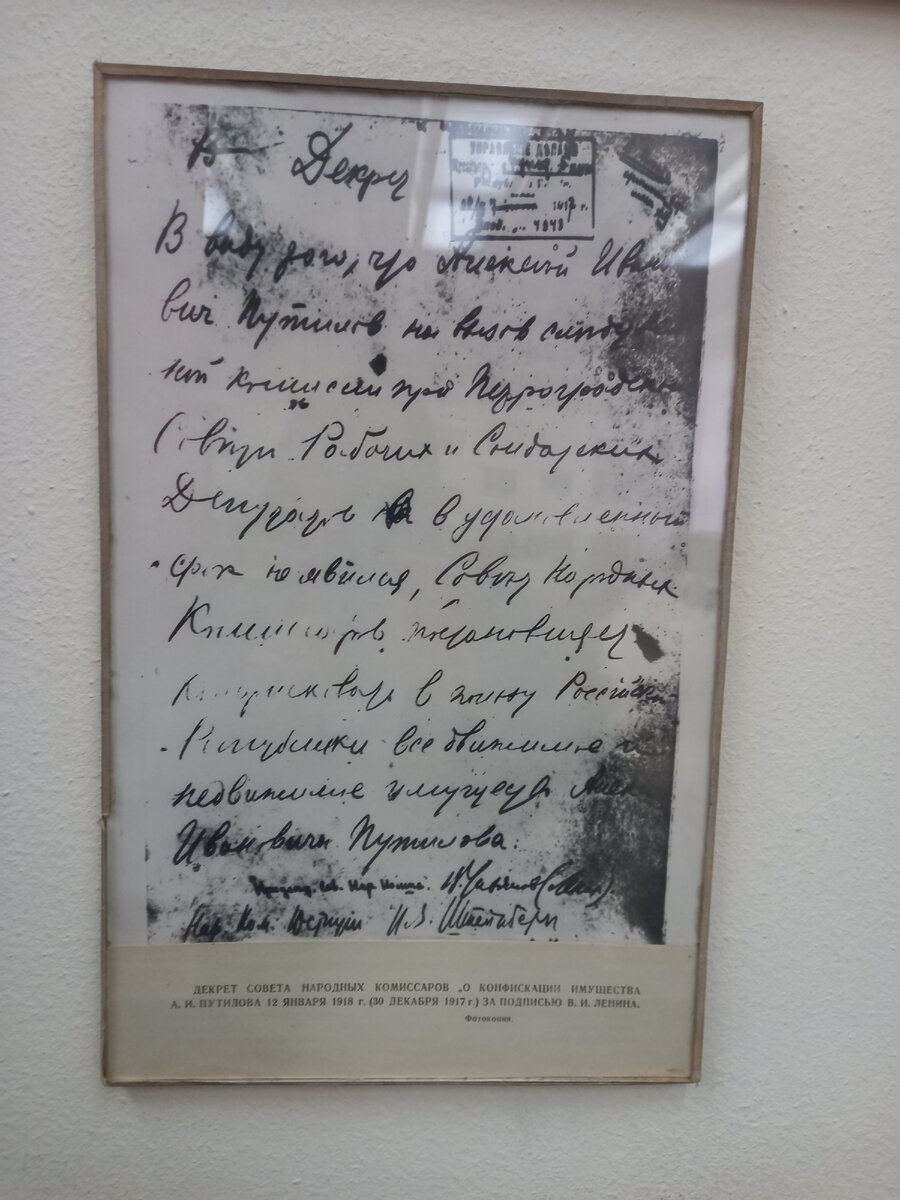 Декрет
УПРАВЛЕНИЕ ДЕЛАМИ
1917 г.
4848
В виду того, что Алексей Ивано
вич Путилов на вызов следствен
ной комиссии при Петроградском
Совете Рабочих и Солдатских
Депутатов в установленный
срок не явился, Совет Народных
Комиссаров постановляет
конфисковать в казну Российской
Республики все движимые и
недвижимые имущества Алек
Ивановича Путилова.
Председ. Сов. Нар. Комис. В. Ульянов (Ленин)
Нар. Ком. Юстиции И. З. Штейнберг
ДЕКРЕТ СОВЕТА НАРОДНЫХ КОМИССАРОВ „О КОНФИСКАЦИИ ИМУЩЕСТВА
А. И. ПУТИЛОВА 12 ЯНВАРЯ 1918 г. (30 ДЕКАБРЯ 1917 г.) ЗА ПОДПИСЬЮ В. И. ЛЕНИНА.
Фотокопия.